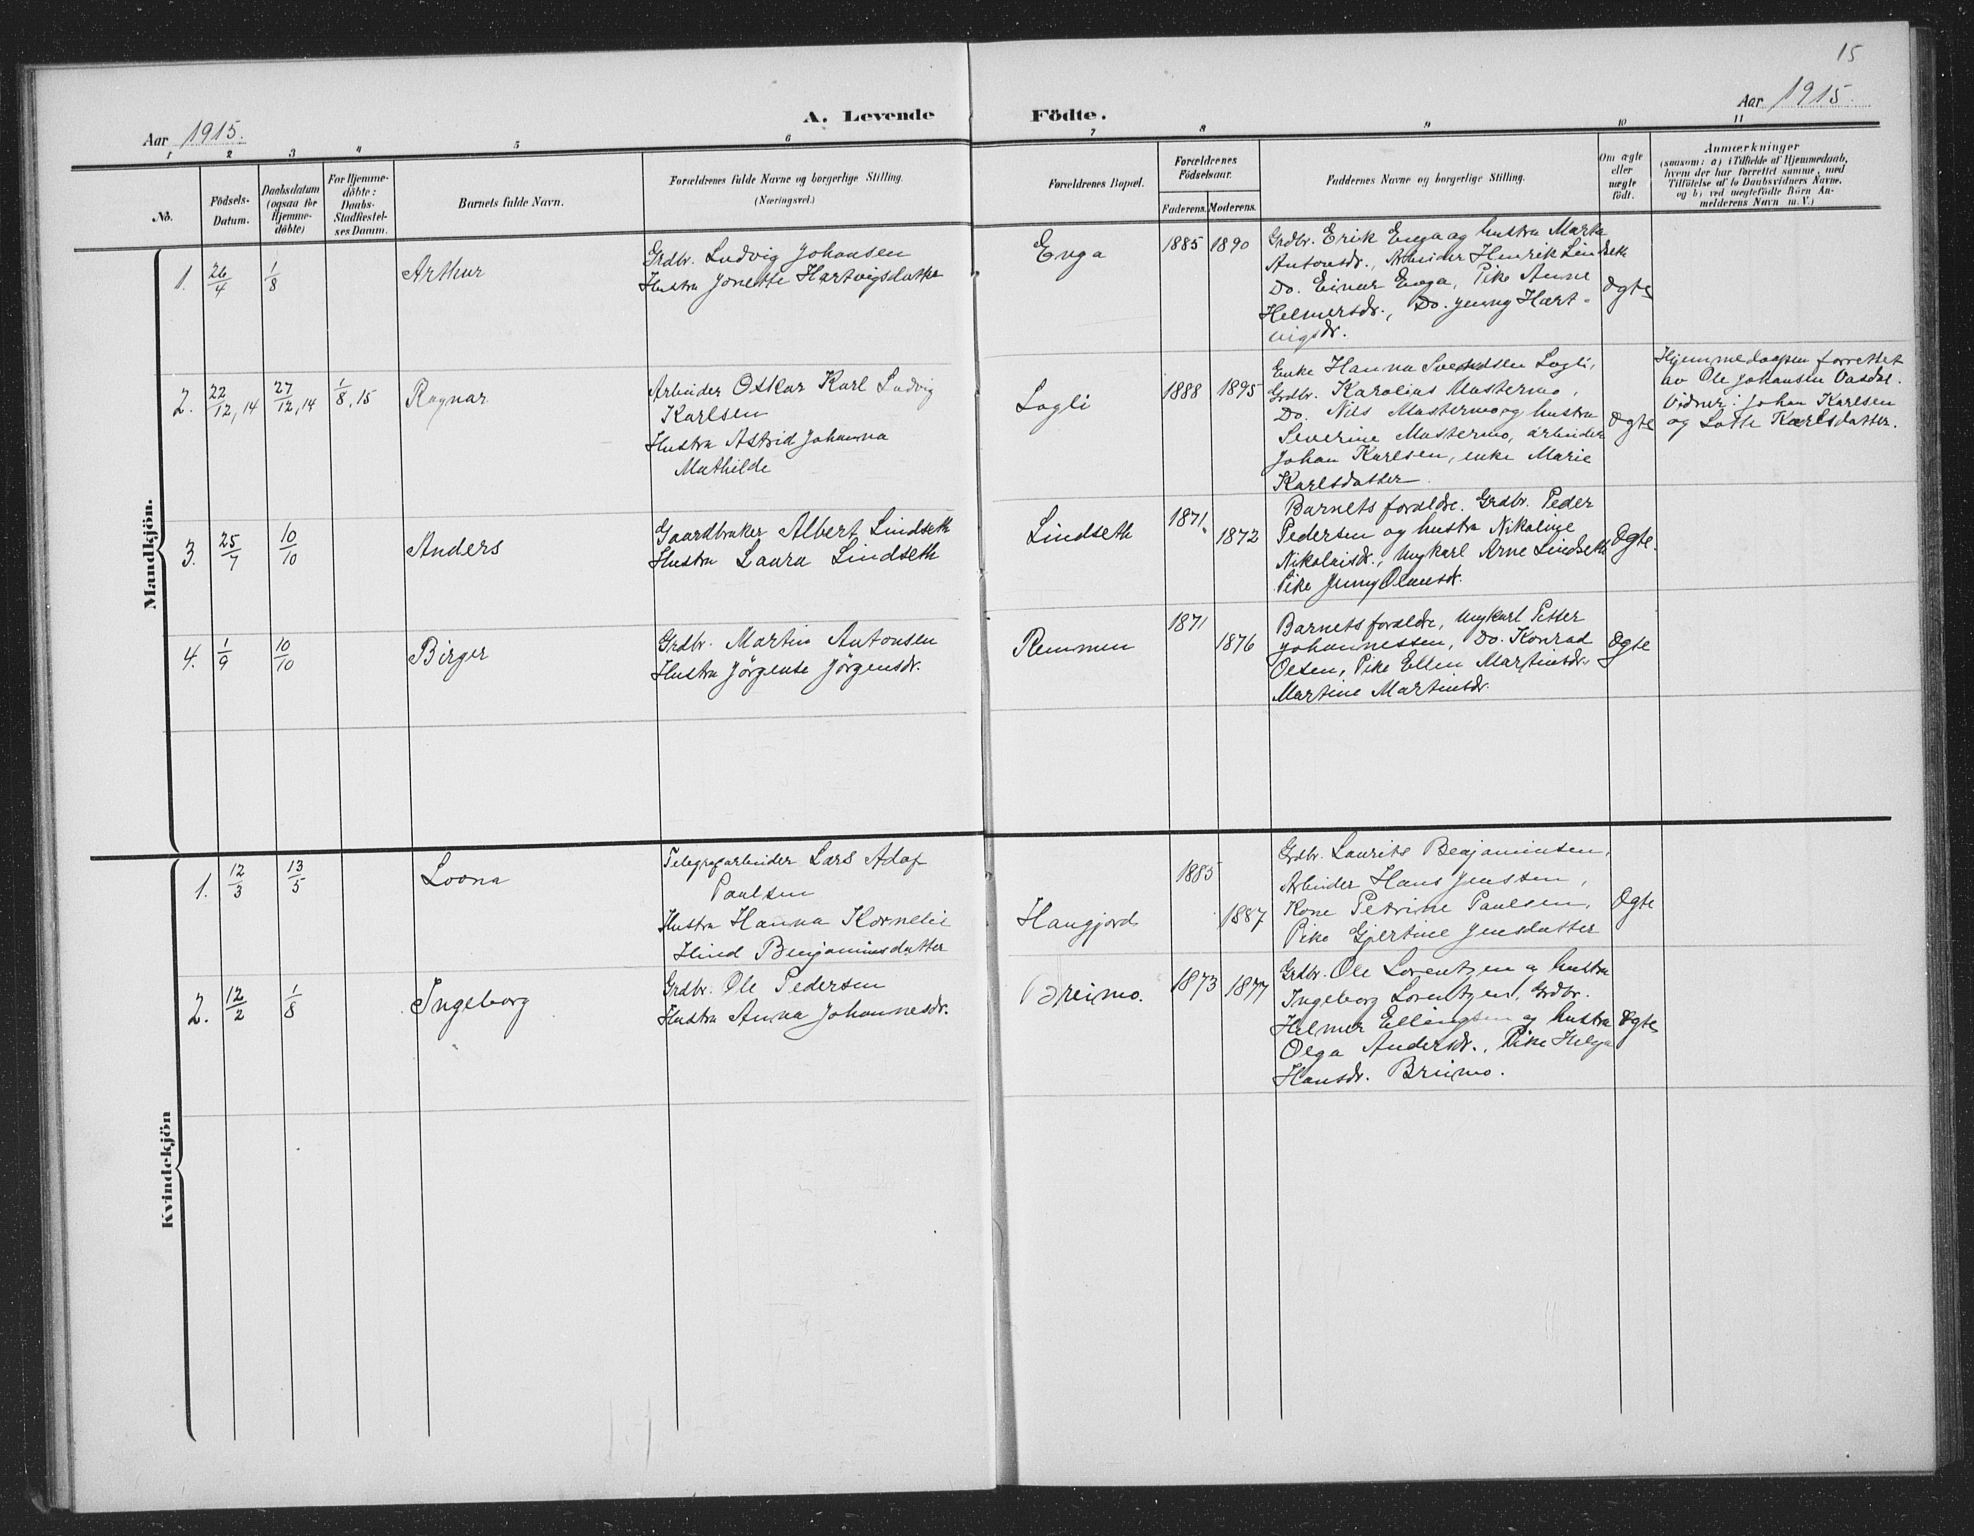 15
Aar 1915.
A. Levende Födte.
Aar 1915.
1 2 3 4 5 6 7 8 9 10 11
No.
Födsels-
Datum.
Daabsdatum
(ogsaa for
Hjemme-
döbte)
For Hjemme-
döbte:
Daabs-
Stadfæstel-
ses Datum.
Barnets fulde Navn.
Forældrenes fulde Navne og borgerlige Stilling.
(Næringsvei.)
Forældrenes Bopæl.
Forældrenes
Födselsaar.
Faderens. Moderens.
Faddernes Navne og borgerlige Stilling.
Om ægte
eller
uægte
födt.
Anmærkninger
(saasom: a) i Tilfælde af Hjemmedaab,
hvem der har forrettet samme, med
Tilföielse af to Daabsvidners Navne,
og b) ved uegtefödte Börn An-
melderens Navn m. V.)
Mandkjön.
1. 26/4 1/8
Arthur
Grdbr. Ludvig Johansen
Hustru Jonette Hartvigsdatter
Enga
1885 1890
Grdbr. Erik Enga og hustru Marta
Antonsdr., Arbeider Henrik Lindseth
Do. Einar Enga, Pike Anne
Helmersdr., Do. Jenny Hart-
vigsdr.
Ægte
2. 22/12, 14 27/12, 14 1/8, 15
Ragnar
Arbeider Oskar Karl Ludvig
Karlsen
Hustru Astrid Johanna
Mathilde
Logli
1888 1895
Enke Hanna Svendsen Logli,
Grdbr. Karolius Mastermo,
Do. Nils Mastermo og hustru
Severine Mastermo, arbeider
Johan Karlsen, enke Marie
Karlsdatter.
Ægte
Hjemmedaapen forrettet
av Ole Johansen Vasdal.
Vidner: Johan Karlsen
og Lotte Karlsdatter.
3. 25/7 10/10
Anders
Gaardbruker Albert Lindseth
Hustru Laura Lindseth
Lindseth
1871 1872
Barnets forældre. Grdbr. Peder
Pedersen og hustru Nikoline
Nikolaisdr., Ungkarl Arne Lindseth
Pike Jenny Olausdr.
Ægte.
4. 1/9 10/10
Birger
Grdbr. Martin Antonsen
Hustru Jörgense Jörgensdr.
Remmen
1871 1876
Barnets forældre, Ungkarl Petter
Johannessen, Do. Konrad
Olsen, Pike Ellen Martinsdr.
Martine Martinsdr.
Ægte
Kvindekjön
1. 12/3 13/5
Lovna
Telegrafarbeider Lars Adolf
Paulsen
Hustru Hanna Kornelie
Hind Benjaminsdatter
Haugjord
1885 1887
Grdbr. Laurits Benjaminsen,
Arbeider Hans Jensen,
Kone Petrine Paulsen,
Pike Gjertine Jensdatter
Ægte
2. 12/2 1/8
Ingeborg
Grdbr. Ole Pedersen
Hustru Anna Johannesdr.
Breimo.
1873 1877
Grdbr. Ole Lorentzen og hustru
Ingeborg Lorentzen, Grdbr.
Helmer Ellingsen og hustru
Olga Andersdr., Pike Helga
Hansdr. Breimo.
Ægte